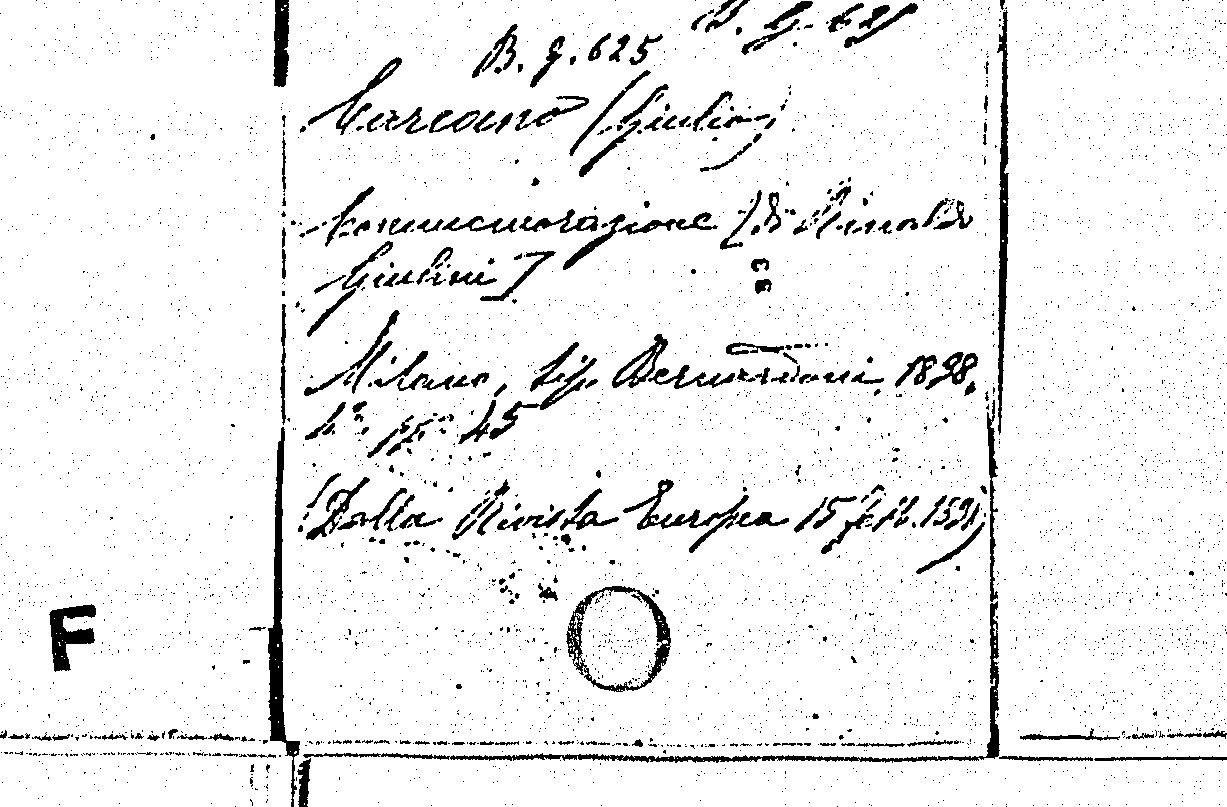 B. G. 625
B. g. 625
Carcano (Giulio)
Commemorazione [di Rinaldo
Giulini]
Milano, tip. Bernardoni,
4º. pp. 45
(Dalla Rivista Europea 15
F